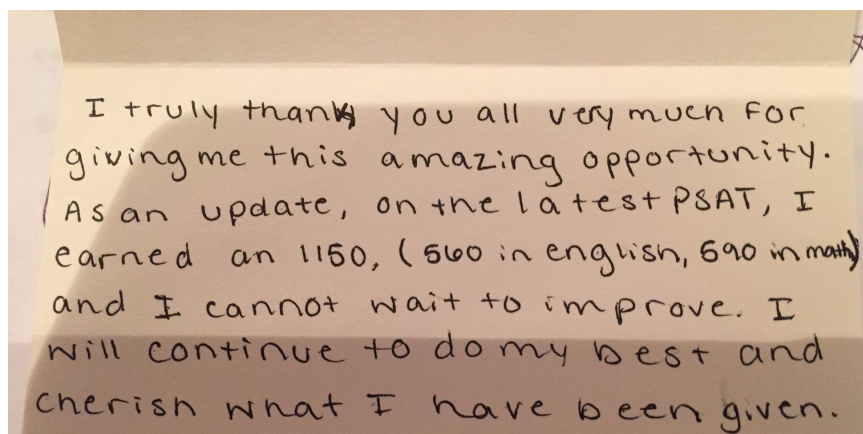 I truly thank you all very much for
giving me this amazing opportunity.
As an update, on the latest PSAT, I
earned an 1150, (560 in english, 590 in math)
and I cannot wait to improve. I
will continue to do my best and
cherish what I have been given.